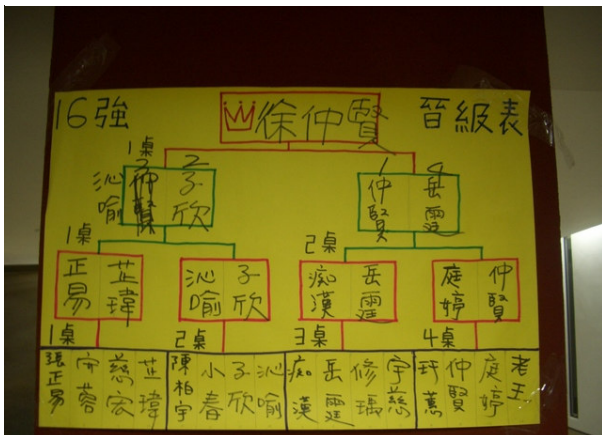 16強
徐仲賢
晉級表
1桌
沁喻
2
子欣
1
仲賢
4
岳霆
1桌
正易
芷瑋
沁喻
子欣
2桌
痴漢
岳霆
庭婷
仲賢
1桌
2桌
3桌
4桌
張正易
安蓉
慈宏
芷瑋
陳柏宇
小春
子欣
沁喻
痴漢
岳霆
修瑀
宇慈
玗蕙
仲賢
庭婷
老王